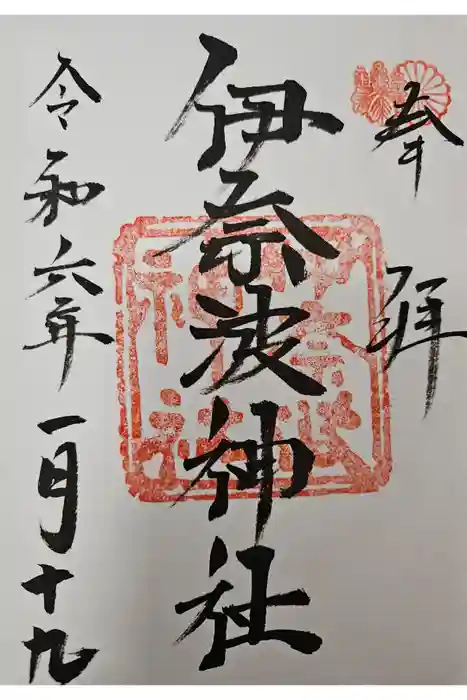 奉拝
伊奈波神社
令和六年一月十九